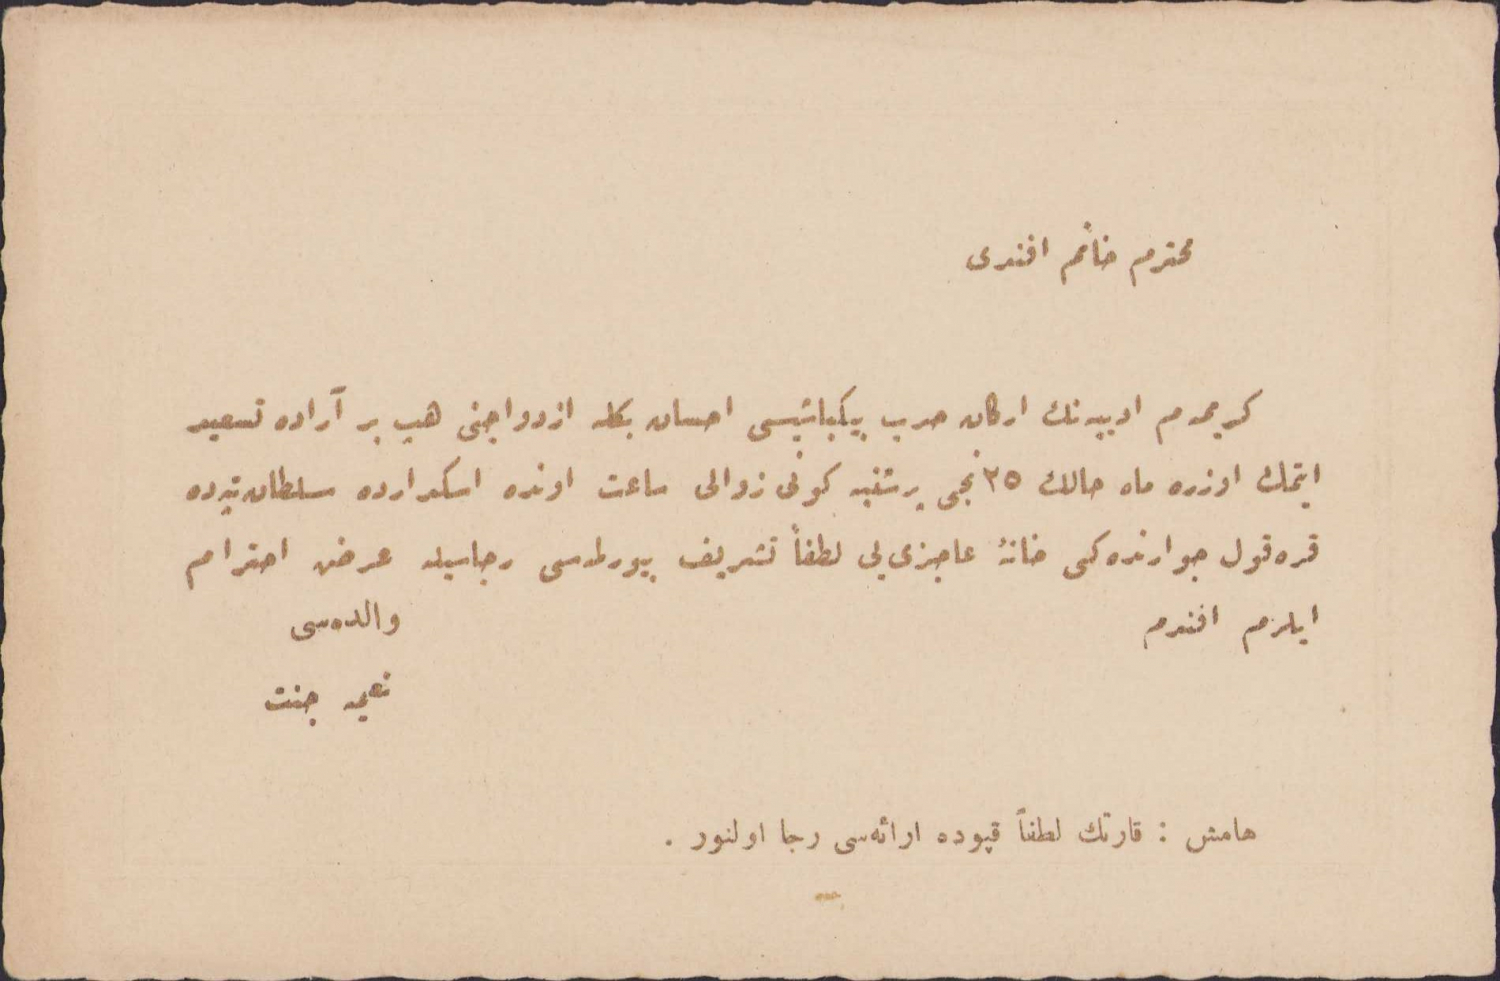 محترم خانم افندی
كریمه‌م ادیبه‌نك اركان حرب بیكباشیسی احسان بكله ازدواجنی هپ بر آراده تسعید
ایتمك اوزره ماه حالك ٢٥ نجی پرشنبه كونی زوالی ساعت اونده اسكدارده سلطان‌تپه‌ده
قره‌قول جوارنده‌كی خانهٔ عاجزی‌یی لطفاً تشریف بیورمله‌سی رجاسیله عرض احترام
ایلرم افندم
والده‌سی
نعیمه جنت
هامش : قارتك لطفاً قپوده ارائه‌سی رجا اولنور .